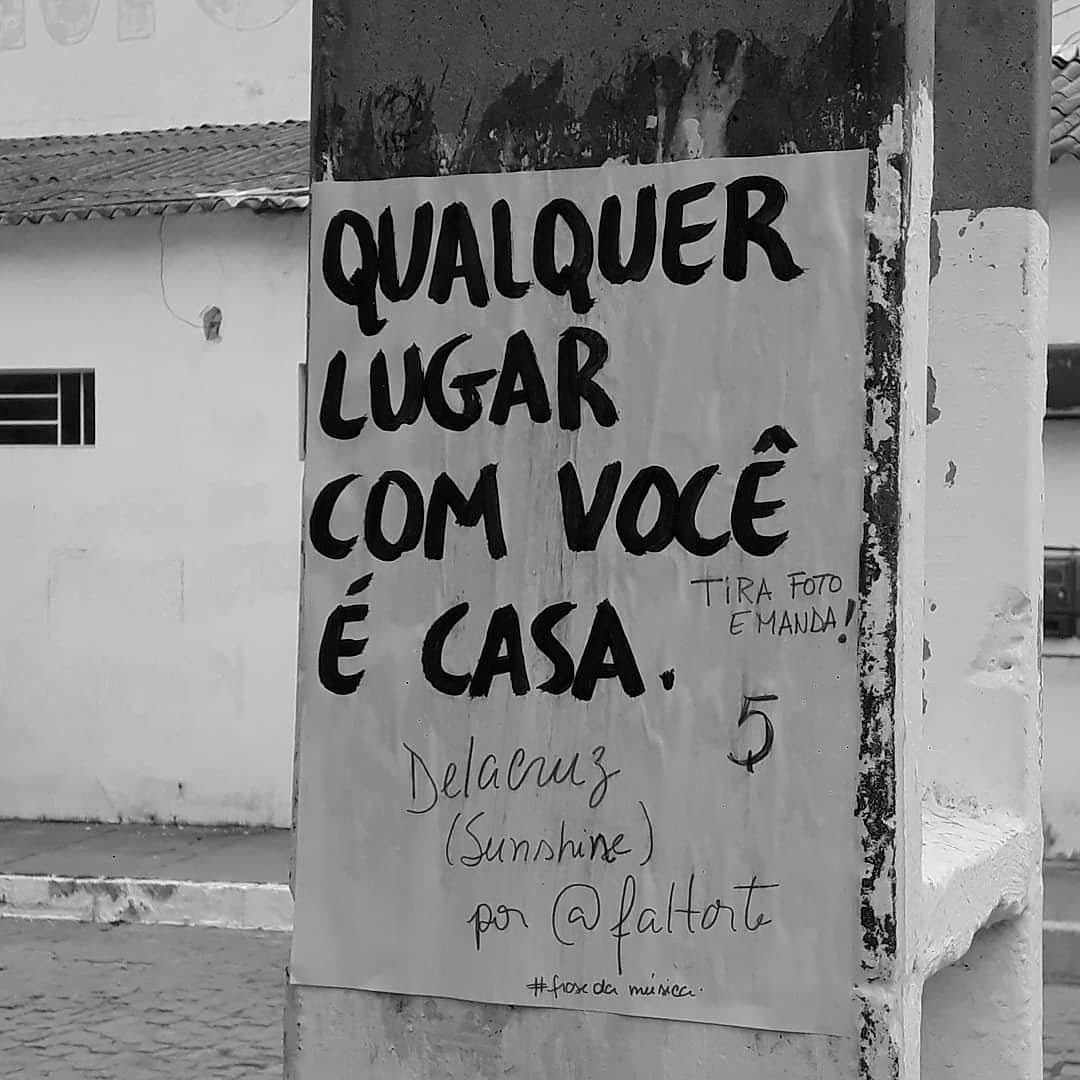 QUALQUER
LUGAR
COM VOCÊ
É CASA.
TIRA FOTO
E MANDA!
5
Delacruz
(Sunshine)
por @faltorte
#frase da música.